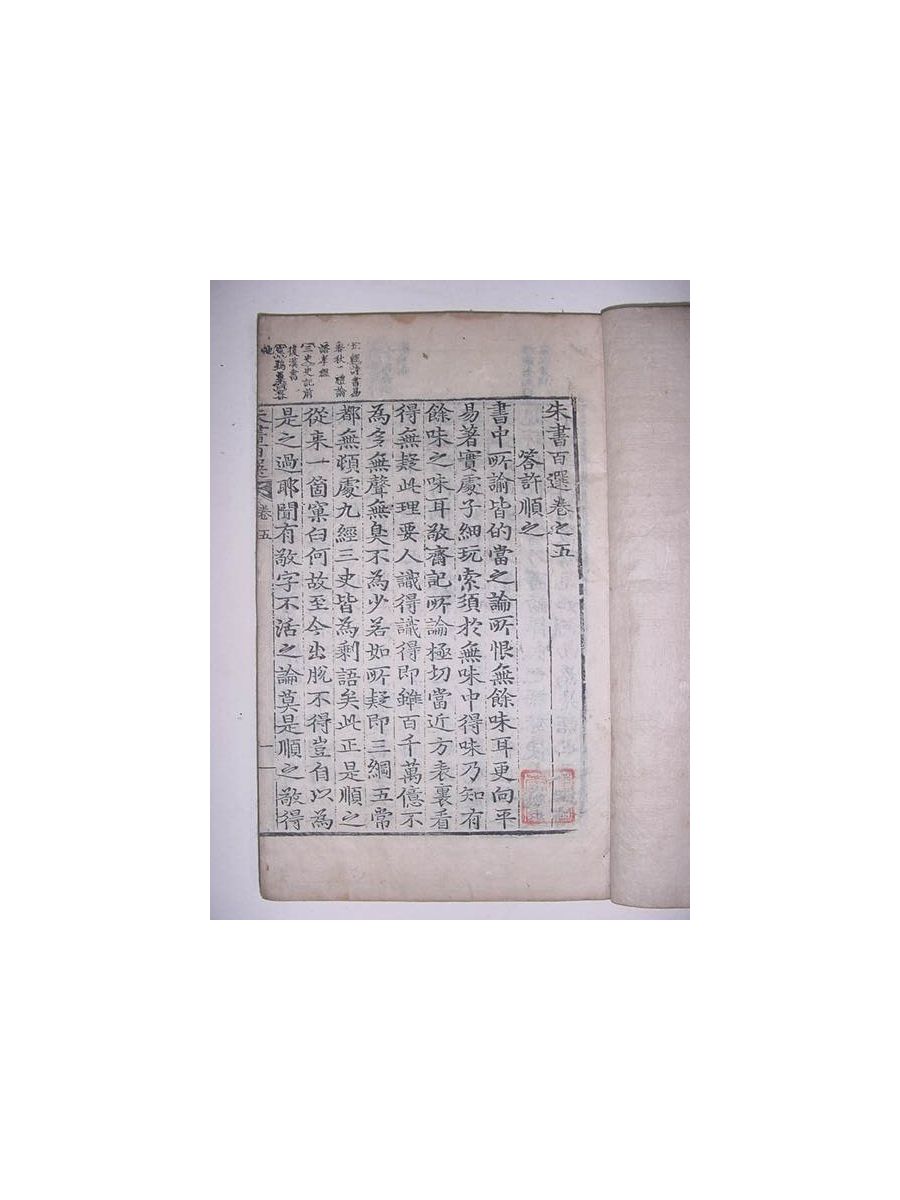 朱書百選卷之五
答許順之
書中所諭皆的當之論所恨無餘味耳更向平
易著實處子細玩索須於無味中得味乃知有
餘味之味耳敬齋記所論極切當近方表裏看
得無疑此理要人識得識得即雖百千萬億不
為多無聲無臭不為少若如所疑即三綱五常
都無頓處九經三史皆為剩語矣此正是順之
從来一箇窠臼何故至今出脫不得豈自以為
是之過耶聞有敬字不活之論莫是順之敬得
朱書百選 卷五
一
五經詩書易
春秋禮論
語孝經
三史史記前
後漢書